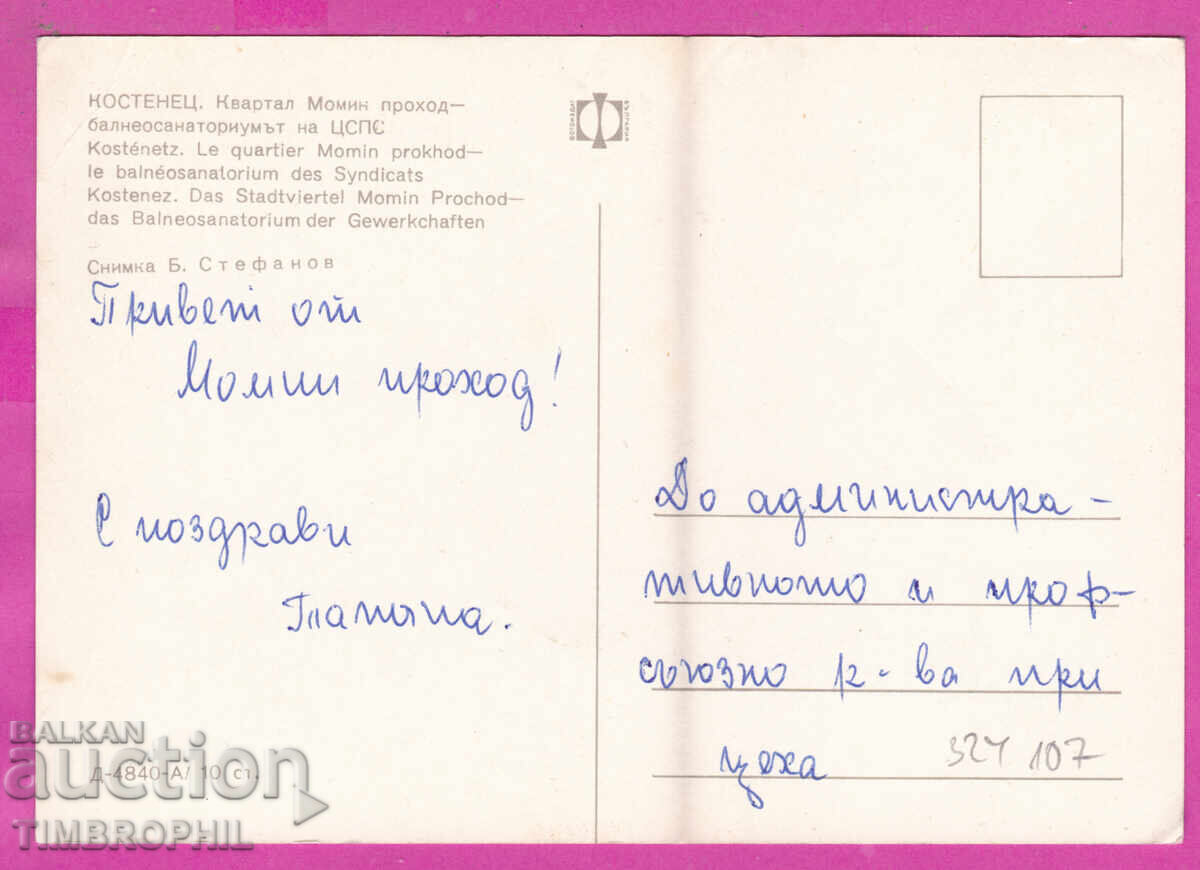 КОСТЕНЕЦ. Квартал Момин проход—
балнеосанаториумът на ЦСПС
Kosténetz. Le quartier Momin prokhod—
le balnéosanatorium des Syndicats
Kostenez. Das Stadtviertel Momin Prochod—
das Balneosanatorium der Gewerkchaften
Снимка Б. Стефанов
Привет от
Момин проход!
С поздрави
Татяна.
Д-4840-А/ 10 ст.
ФОТОИЗДАТ БЪЛГАРИЯ
До администра-
тивното и проф-
съюзно р-ва при
цеха
324 107
BALKAN
auction
TIMBROPHIL